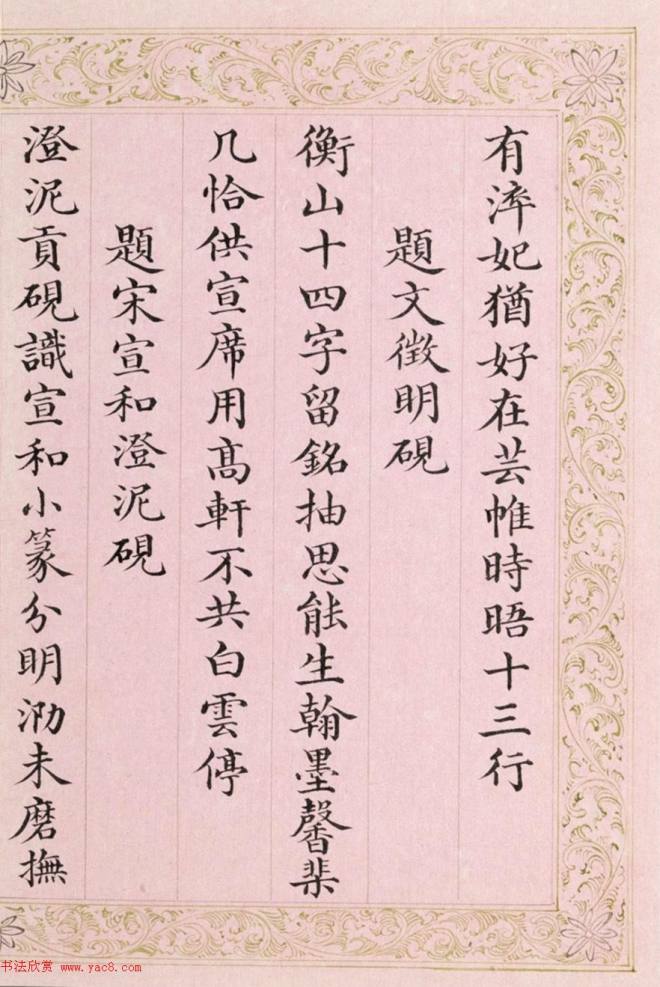 有淬妃猶好在芸帷時晤十三行
題文徵明硯
衡山十四字留銘抽思能生翰墨馨棐
几恰供宣席用髙軒不共白雲停
題宋宣和澄泥硯
澄泥貢硯識宣和小篆分明泐未磨撫
书法欣赏 www.yac8.com